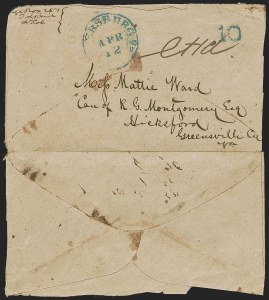 ERSBURG
APR
12
10
Chg
Miss Mattie Ward
Care of R. G. Montgomery Esq
Hicksford
Greensville Co
Va